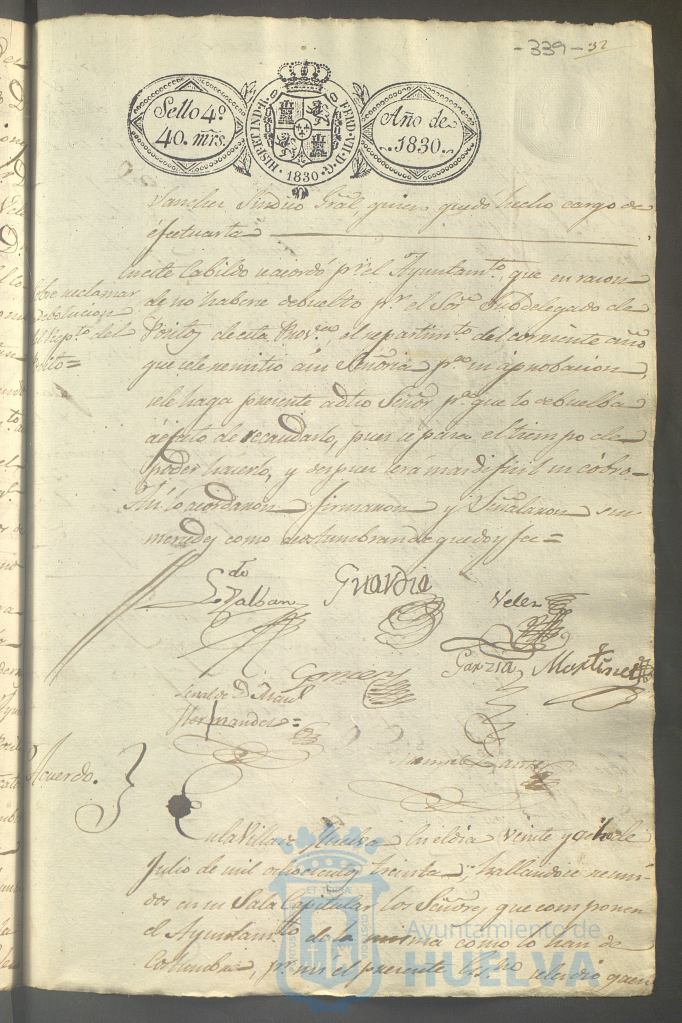 -339- 32
Sello 4º
40. mrs.
HISPET IND. R. FERD. VII. D. G.
1830
Año de
1830.
Sanchez Sindico Gral, quien quedo hecho cargo de
efectuarla
En este Cabildo se acordó pr. el Ayuntamto, que en razon
de no haberse debuelto pr. el Sor. Subdelegado de
Positos de esta Provca, el repartimto. del corriente año
que se le remitio à su Señoria pa. su aprobacion,
se le haga presente à dho Señor pa. que lo debuelba
à efecto de recaudarlo, pues se pasa el tiempo de
poder hacerlo, y despues será mas dificil su cobro=
Asi lo acordaron firmaron y Señalaron sus
mercedes como acostumbran de que doy fee=
Sobre reclamar
devolucion
del Repto. del
Posito=
Ldo
Galban
Guardia
Velez
Garzia
Martinez
Gomez
Señal de D. Manl.
Hernandez=
Manuel
Acuerdo.
En la Villa de Huelva en el dia veinte y ocho de
Julio de mil ochocientos treinta; hallandose reuni-
dos en su Sala Capitular los Señores que componen
el Ayuntamto de la misma como lo han de
costumbre, pr. mi el presente Essno se le dio quen
Ayuntamiento de
HUELVA